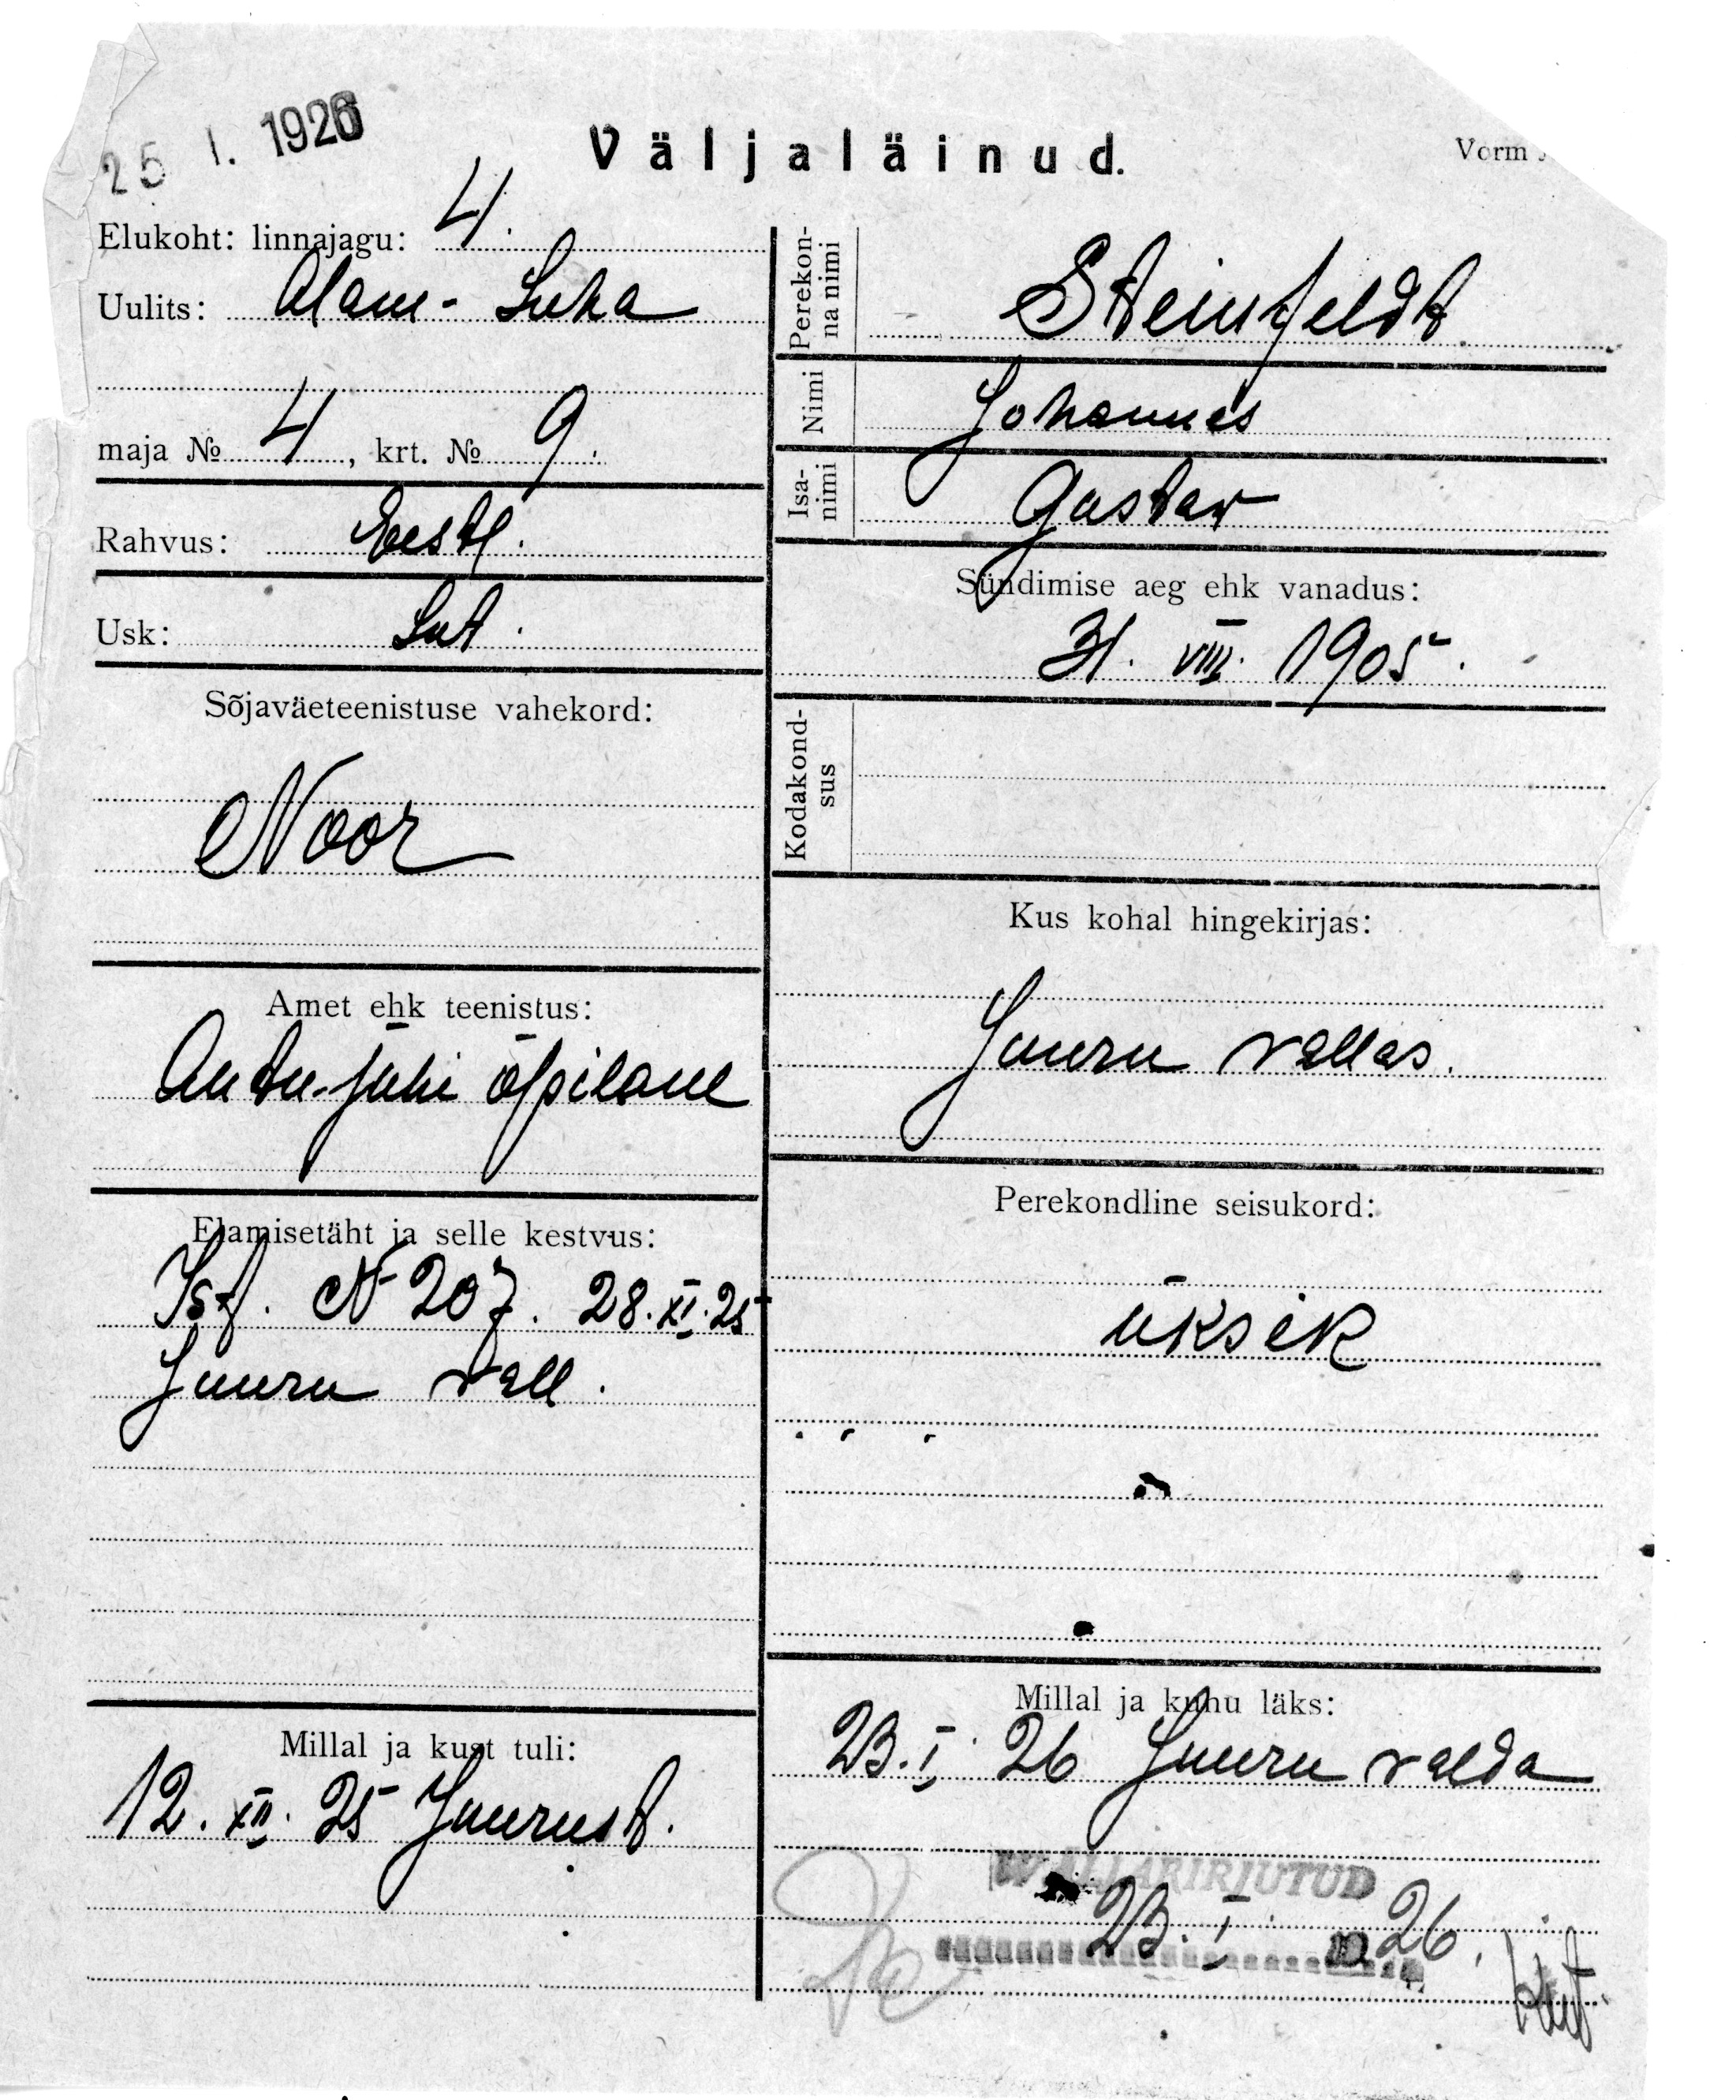 25 I. 1926
Väljaläinud.
Vorm
Elukoht: linnajagu: 4.
Uulits: Alam-Juha
maja № 4, krt. № 9.
Rahvus: Eestl.
Usk: Lut.
Sõjaväeteenistuse vahekord:
Noor
Amet ehk teenistus:
Autu-juhi õpilane
Elamisetäht ja selle kestvus:
Ist. N 207. 28.XI.25
Juuru vall.
Millal ja kust tuli:
12. XII. 25 Juurust.
Perekonna nimi
Steinfeldt
Nimi
Johannes
Isanimi
Gustav
Sündimise aeg ehk vanadus:
31. VIII. 1905.
Kodakondsus
Kus kohal hingekirjas:
Juuru vallas.
Perekondline seisukord:
üksik
Millal ja kuhu läks:
23. I. 26 Juuru valda
23. I 26.